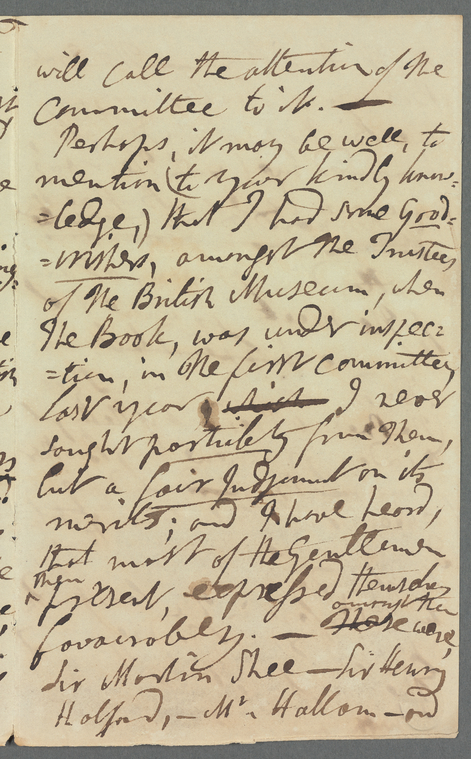 will call the attention of the
Committee to it. —
Perhaps, it may be well, to
mention (to your kindly know-
=ledge,) that I had some Good-
=wishers, amongst the Trustees
of the British Museum, when
The Book, was under inspec-
=tion, in the first committee,
last year I never
sought partiality from them,
but a fair Judgement on its
merits; and I have heard,
that most of the Gentlemen
then
present, expressed themselves
amongst them
favourably. — were,
Sir Martin Shee — Sir Henry
Halford, — Mr. Hallam — and